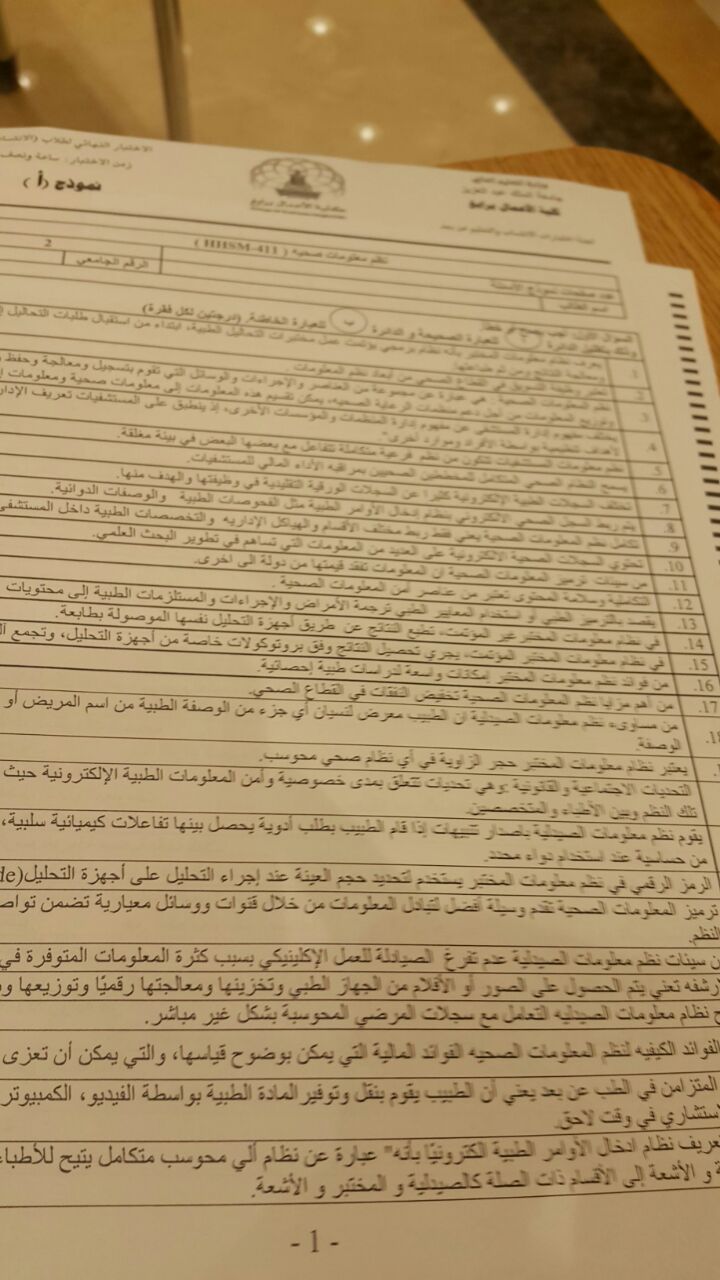 الاختبار النهائي لطلاب (الانتساب
زمن الاختبار: ساعة ونصف
نموذج (أ)
كلية الأعمال برابغ
جامعة الملك عبد العزيز
كلية الأعمال برابغ
نظم معلومات صحيه ( HHSM-411 )
عدد صفحات نموذج الأسئلة
2
اسم الطالب
الرقم الجامعي
للعبارة الصحيحة و الدائرة ب للعبارة الخاطئة. (درجتين لكل فقرة)
1. يعرف نظام معلومات المختبر بأنه نظام برمجي يؤتمت عمل مختبرات التحاليل الطبية، ابتداء من استقبال طلبات التحاليل
2. من أبعاد نظم المعلومات.
3. نظم المعلومات الصحية : هي عبارة عن مجموعة من العناصر والإجراءات والوسائل التي تقوم بتسجيل ومعالجة وحفظ
وتوزيع المعلومات من أجل دعم منظمات الرعاية الصحيه، يمكن تقسيم هذه المعلومات إلى معلومات صحية ومعلومات
4. يختلف مفهوم إدارة المستشفى عن مفهوم إدارة المنظمات والمؤسسات الأخرى، إذ ينطبق على المستشفيات تعريف
لأهداف تنظيمية بواسطة الأفراد وموارد أخرى"
5. نظم معلومات المستشفيات تتكون من نظم فرعية متكاملة تتفاعل مع بعضها البعض في بيئة مغلقة.
6. يسمح النظام الصحي الشامل للمخططين الصحيين بمراقبه الأداء المالي للمستشفيات.
7. تختلف السجلات الطبية الإلكترونية كثيرا عن السجلات الورقية التقليدية في وظيفتها والهدف منها.
8. يتم ربط السجل الصحي الالكتروني بنظام ادخال الأوامر الطبية مثل الفحوصات الطبية والوصفات الدوائية.
9. تكامل نظم المعلومات الصحية يعني فقط ربط مختلف الأقسام والهياكل الإداريه والتخصصات الطبية داخل المستشفى
10. تحتوي السجلات الصحية الالكترونية على العديد من المعلومات التي تساهم في تطوير البحث العلمي.
11. من سيئات ترميز المعلومات الصحية ان المعلومات تفقد قيمتها من دولة الى اخرى.
12. التكاملية وسلامة المحتوى تعتبر من عناصر أمن المعلومات الصحية .
13. يقصد بالترميز الطبي أو استخدام المعايير الطبي ترجمة الأمراض والإجراءات والمستلزمات الطبية إلى محتويات
14. في نظام معلومات المختبر غير المؤتمت، تطبع النتائج عن طريق أجهزة التحليل نفسها الموصولة بطابعة.
15. في نظام معلومات المختبر المؤتمت، يجري تحصيل النتائج وفق بروتوكولات خاصة من أجهزة التحليل، وتجمع
16. من فوائد نظم معلومات المختبر إمكانات واسعة لدراسات طبية إحصائية.
17. من أهم مزايا نظم المعلومات الصحية تخفيض النفقات في القطاع الصحي.
من مساوىء نظم معلومات الصيدلية ان الطبيب معرض لنسيان أي جزء من الوصفة الطبية من اسم المريض أو
الوصفة.
يعتبر نظام معلومات المختبر حجر الزاوية في أي نظام صحي محوسب.
التحديات الاجتماعية والقانونية :وهي تحديات تتعلق بمدى خصوصية وأمن المعلومات الطبية الإلكترونية حيث
تلك النظم وبين الأطباء والمتخصصين.
يقوم نظم معلومات الصيدلية باصدار تنبيهات إذا قام الطبيب بطلب أدوية يحصل بينها تفاعلات كيميائية سلبية،
من حساسية عند استخدام دواء محدد.
الرمز الرقمي في نظم معلومات المختبر يستخدم لتحديد حجم العينة عند إجراء التحليل على أجهزة التحليل(de
ترميز المعلومات الصحية تقدم وسيلة أفضل لتبادل المعلومات من خلال قنوات ووسائل معيارية تضمن
النظم.
ن سيئات نظم معلومات الصيدلية عدم تفرغ الصيادلة للعمل الإكلينيكي بسبب كثرة المعلومات المتوفرة في
رشفه تعني يتم الحصول على الصور أو الأقلام من الجهاز الطبي وتخزينها ومعالجتها رقميًا وتوزيعها
ح نظام معلومات الصيدليه التعامل مع سجلات المرضي المحوسبة بشكل غير مباشر.
الفوائد الكيفيه لنظم المعلومات الصحيه الفوائد المالية التي يمكن بوضوح قياسها، والتي يمكن أن تعزى
المتزامن في الطب عن بعد يعني أن الطبيب يقوم بنقل وتوفير المادة الطبية بواسطة الفيديو، الكمبيوتر
استشاري في وقت لاحق.
عريف نظام ادخال الأوامر الطبية الكترونيًا بأنه" عبارة عن نظام ألي محوسب متكامل يتيح للأطباء
ة و الأشعة إلى الأقسام ذات الصلة كالصيدلية و المختبر و الأشعة.
- 1 -